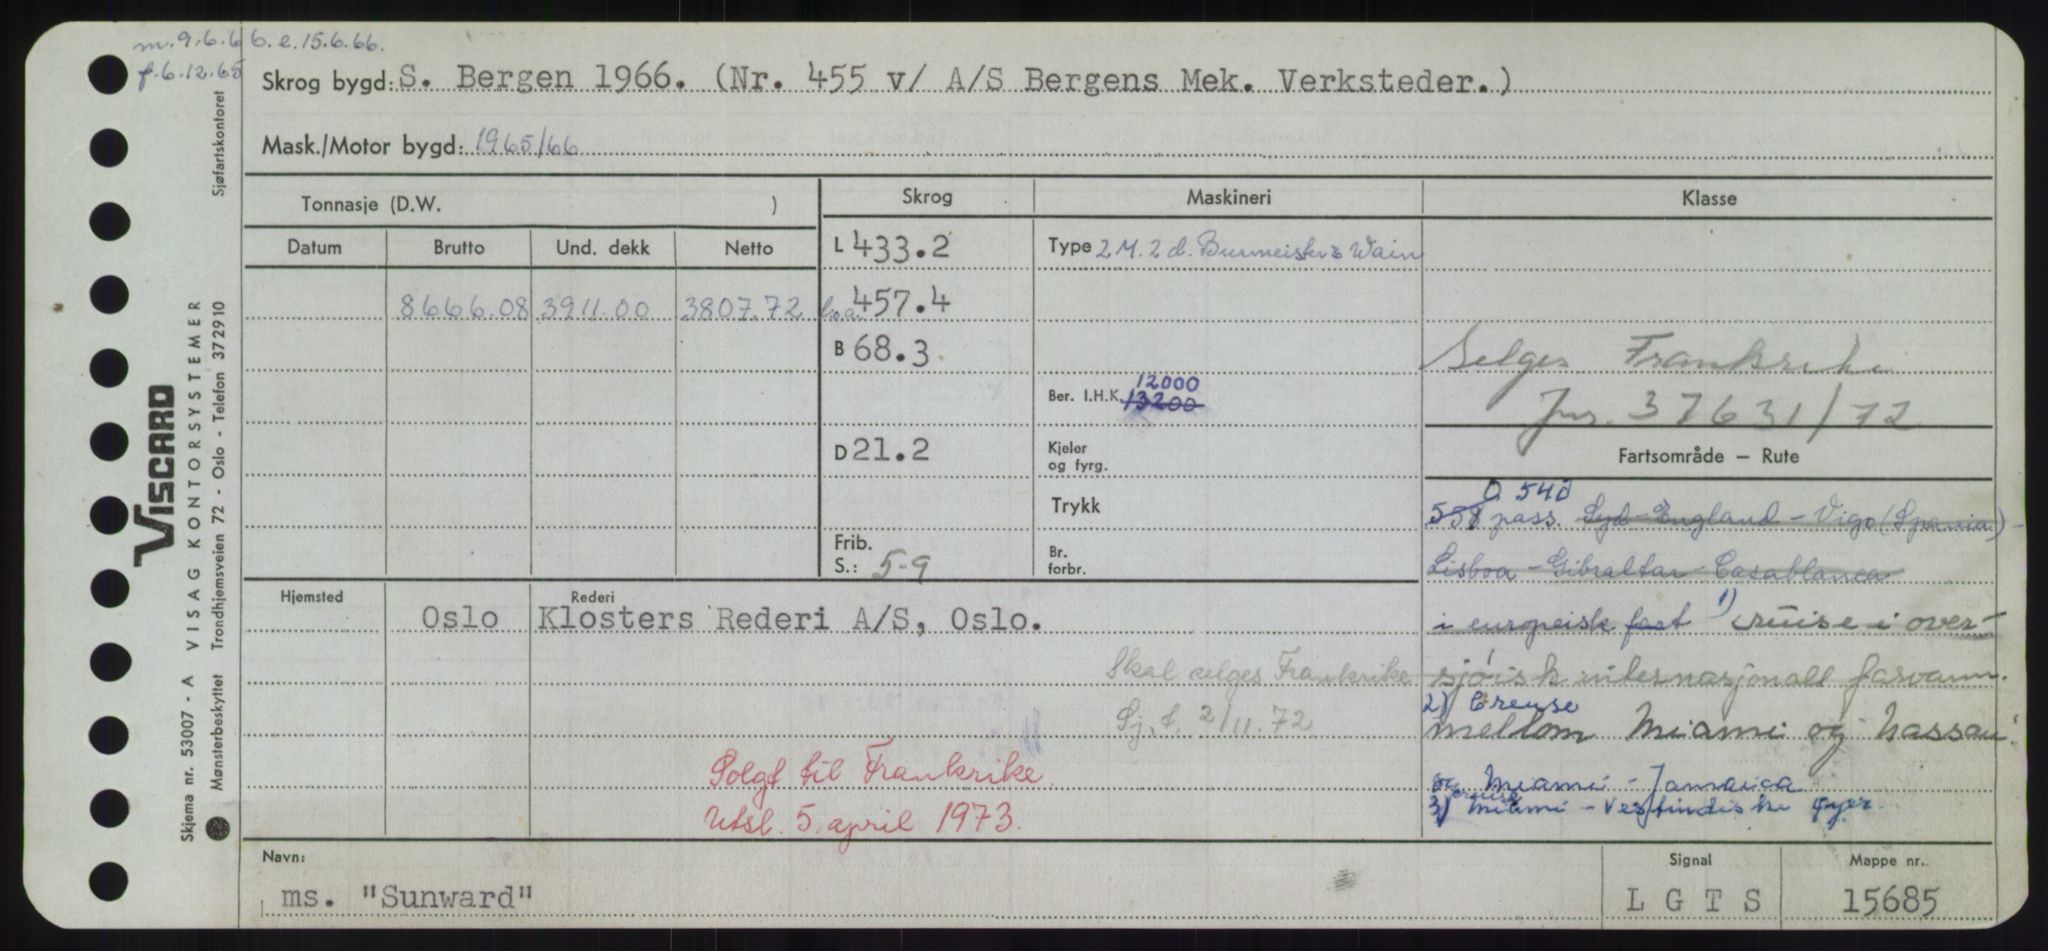 m. 9.6.66. e. 15.6.66.
f. 6.12.65
Skrog bygd: S. Bergen 1966. (Nr. 455 v/ A/S Bergens Mek. Verksteder.)
Mask./Motor bygd: 1965/66
Tonnasje (D.W. )
Skrog
Maskineri
Klasse
Datum Brutto Und. dekk Netto
8666.08 3911.00 3807.72
L 433.2
l.o.a. 457.4
B 68.3
D 21.2
Frib.
S.: 5-9
Type 2 M. 2 d. Burmeister & Wain
12000
Ber. I.H.K. 13200
Kjeler
og fyrg.
Trykk
Br.
forbr.
Selges Frankrike
Jnr. 37631/72
Fartsområde — Rute
540
558 pass. Syd-England - Vigo (Spania) -
Lisboa - Gibraltar - Casablanca
i europeisk fart 1) cruise i over-
sjøisk internasjonall farvann.
2) Creuse
mellom Miami og Nassau.
og Miami - Jamaica
cruise
3) Miami - Vestindiske øyer.
Hjemsted
Oslo
Rederi
Klosters Rederi A/S, Oslo.
Skal selges Frankrike
Sj. t. 2/11.72
Solgt til Frankrike.
Utsl. 5. april 1973.
Navn:
ms. "Sunward"
Signal
L G T S
Mappe nr.
15685
Sjøfartskontoret
VISCARD
Skjema nr. 53007 - A VISAG KONTORSYSTEMER
Mønsterbeskyttet Trondhjemsveien 72 - Oslo - Telefon 372910